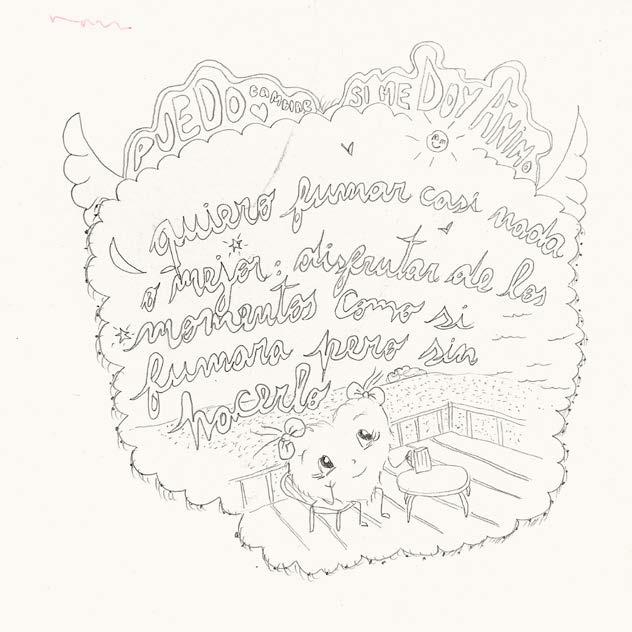 PUEDO CAMBIAR SI ME DOY ÁNIMO
quiero fumar casi nada
o mejor: disfrutar de los
momentos como si
fumara pero sin
hacerlo